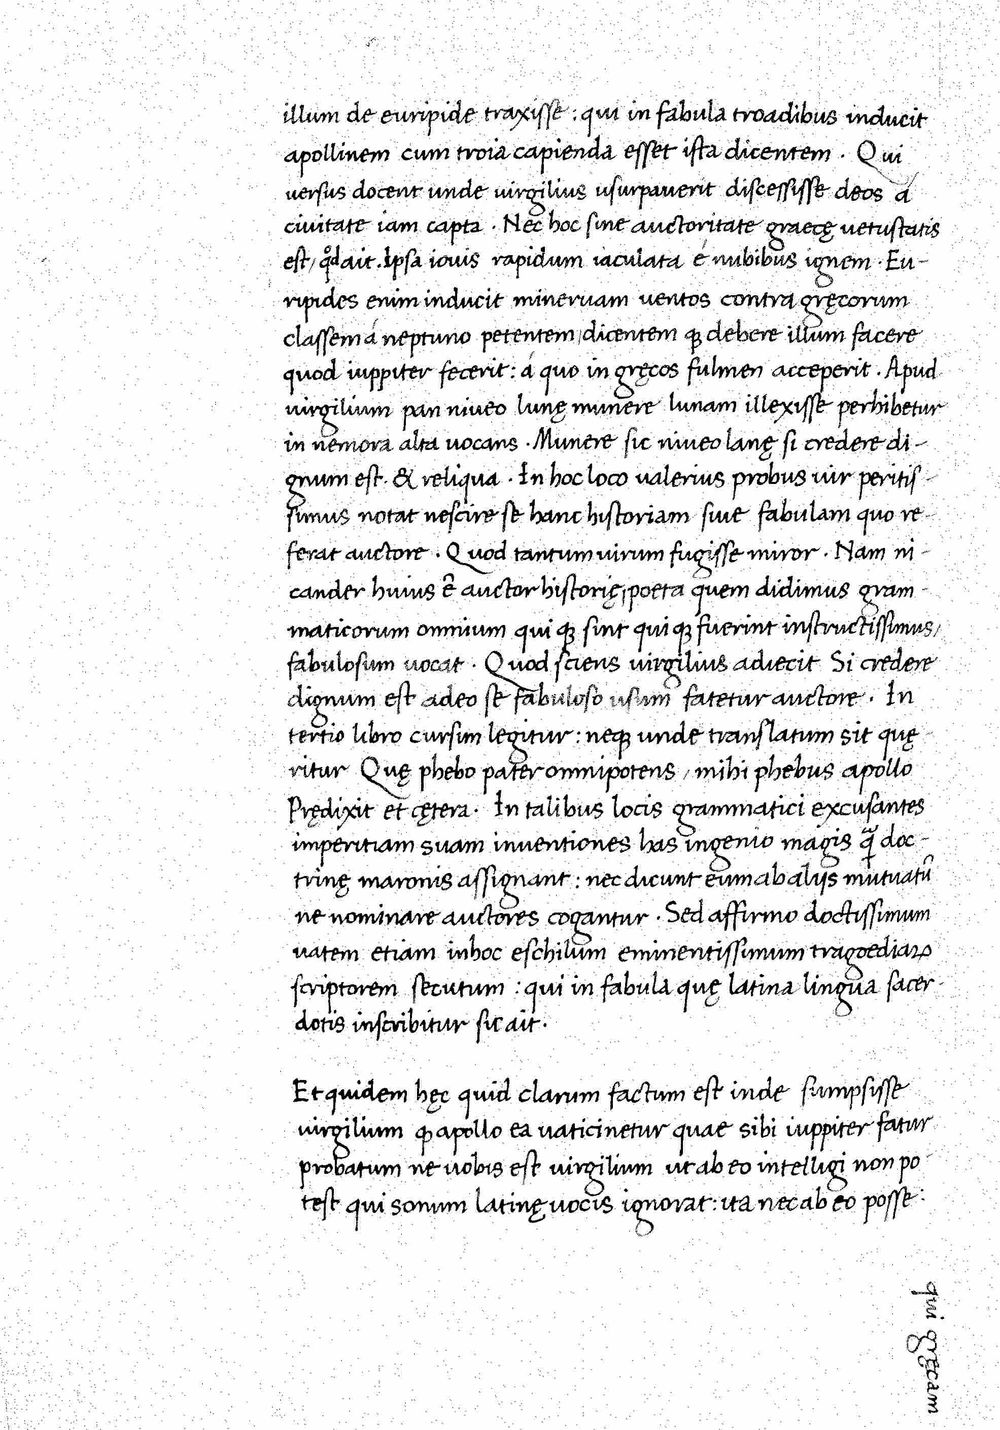 illum de euripide traxisse : qui in fabula troadibus inducit
apollinem cum troia capienda esset ista dicentem . Qui
versus docent unde virgilius usurpaverit discessisse deos á
civitate iam capta . Nec hoc sine auctoritate graecę vetustatis
est, qd ait. Ipsa iovis rapidum iaculata é nubibus ignem . Eu-
ripides enim inducit minervam ventos contra gręcorum
classem á neptuno petentem, dicentem ꝙ debere illum facere
quod iuppiter fecerit : á quo in gręcos fulmen acceperit . Apud
virgilium pan niveo lunę munere lunam illexisse perhibetur
in nemora alta vocans . Munere sic niveo lanę si credere di-
gnum est . & reliqua . In hoc loco valerius probus vir peritis-
simus notat nescire se hanc historiam sive fabulam quo re-
ferat auctore . Quod tantum virum fugisse miror . Nam ni-
cander huius ē auctor historię, poeta quem didimus gram-
maticorum omnium quiꝙ sint quiꝙ fuerint instructissimus,
fabulosum vocat . Quod sciens virgilius adiecit Si credere
dignum est adeo se fabuloso usum fatetur auctore . In
tertio libro cursim legitur : neꝙ unde translatum sit quę
ritur Quę phebo pater omnipotens , mihi phebus apollo
Prędixit et cętera . In talibus locis grammatici excusantes
imperitiam suam inventiones has ingenio magis q̄ doc-
trinę maronis assignant : nec dicunt eum ab aliis mutuatū
ne nominare auctores cogantur . Sed affirmo doctissimum
vatem etiam in hoc eschilum eminentissimum tragoediaꝝ
scriptorem secutum : qui in fabula quę latina lingua sacer-
dotis inscribitur sic ait .
Et quidem hęc quid clarum factum est inde sumpsisse
virgilium ꝙ apollo ea vaticinetur quae sibi iuppiter fatur
probatum ne vobis est virgilium ut ab eo intelligi non po
test qui sonum latinę vocis ignorat : ita nec ab eo posse :
qui gręcam